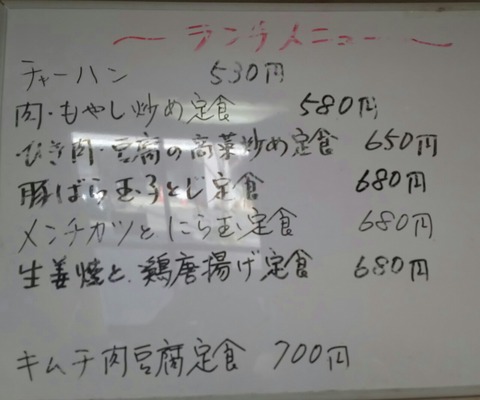 ～ランチメニュー～
チャーハン 530円
肉・もやし炒め定食 580円
・ひき肉・豆腐の高菜炒め定食 650円
豚ばら玉子とじ定食 680円
メンチカツとにら玉定食 680円
生姜焼と、鶏唐揚げ定食 680円
キムチ肉豆腐定食 700円